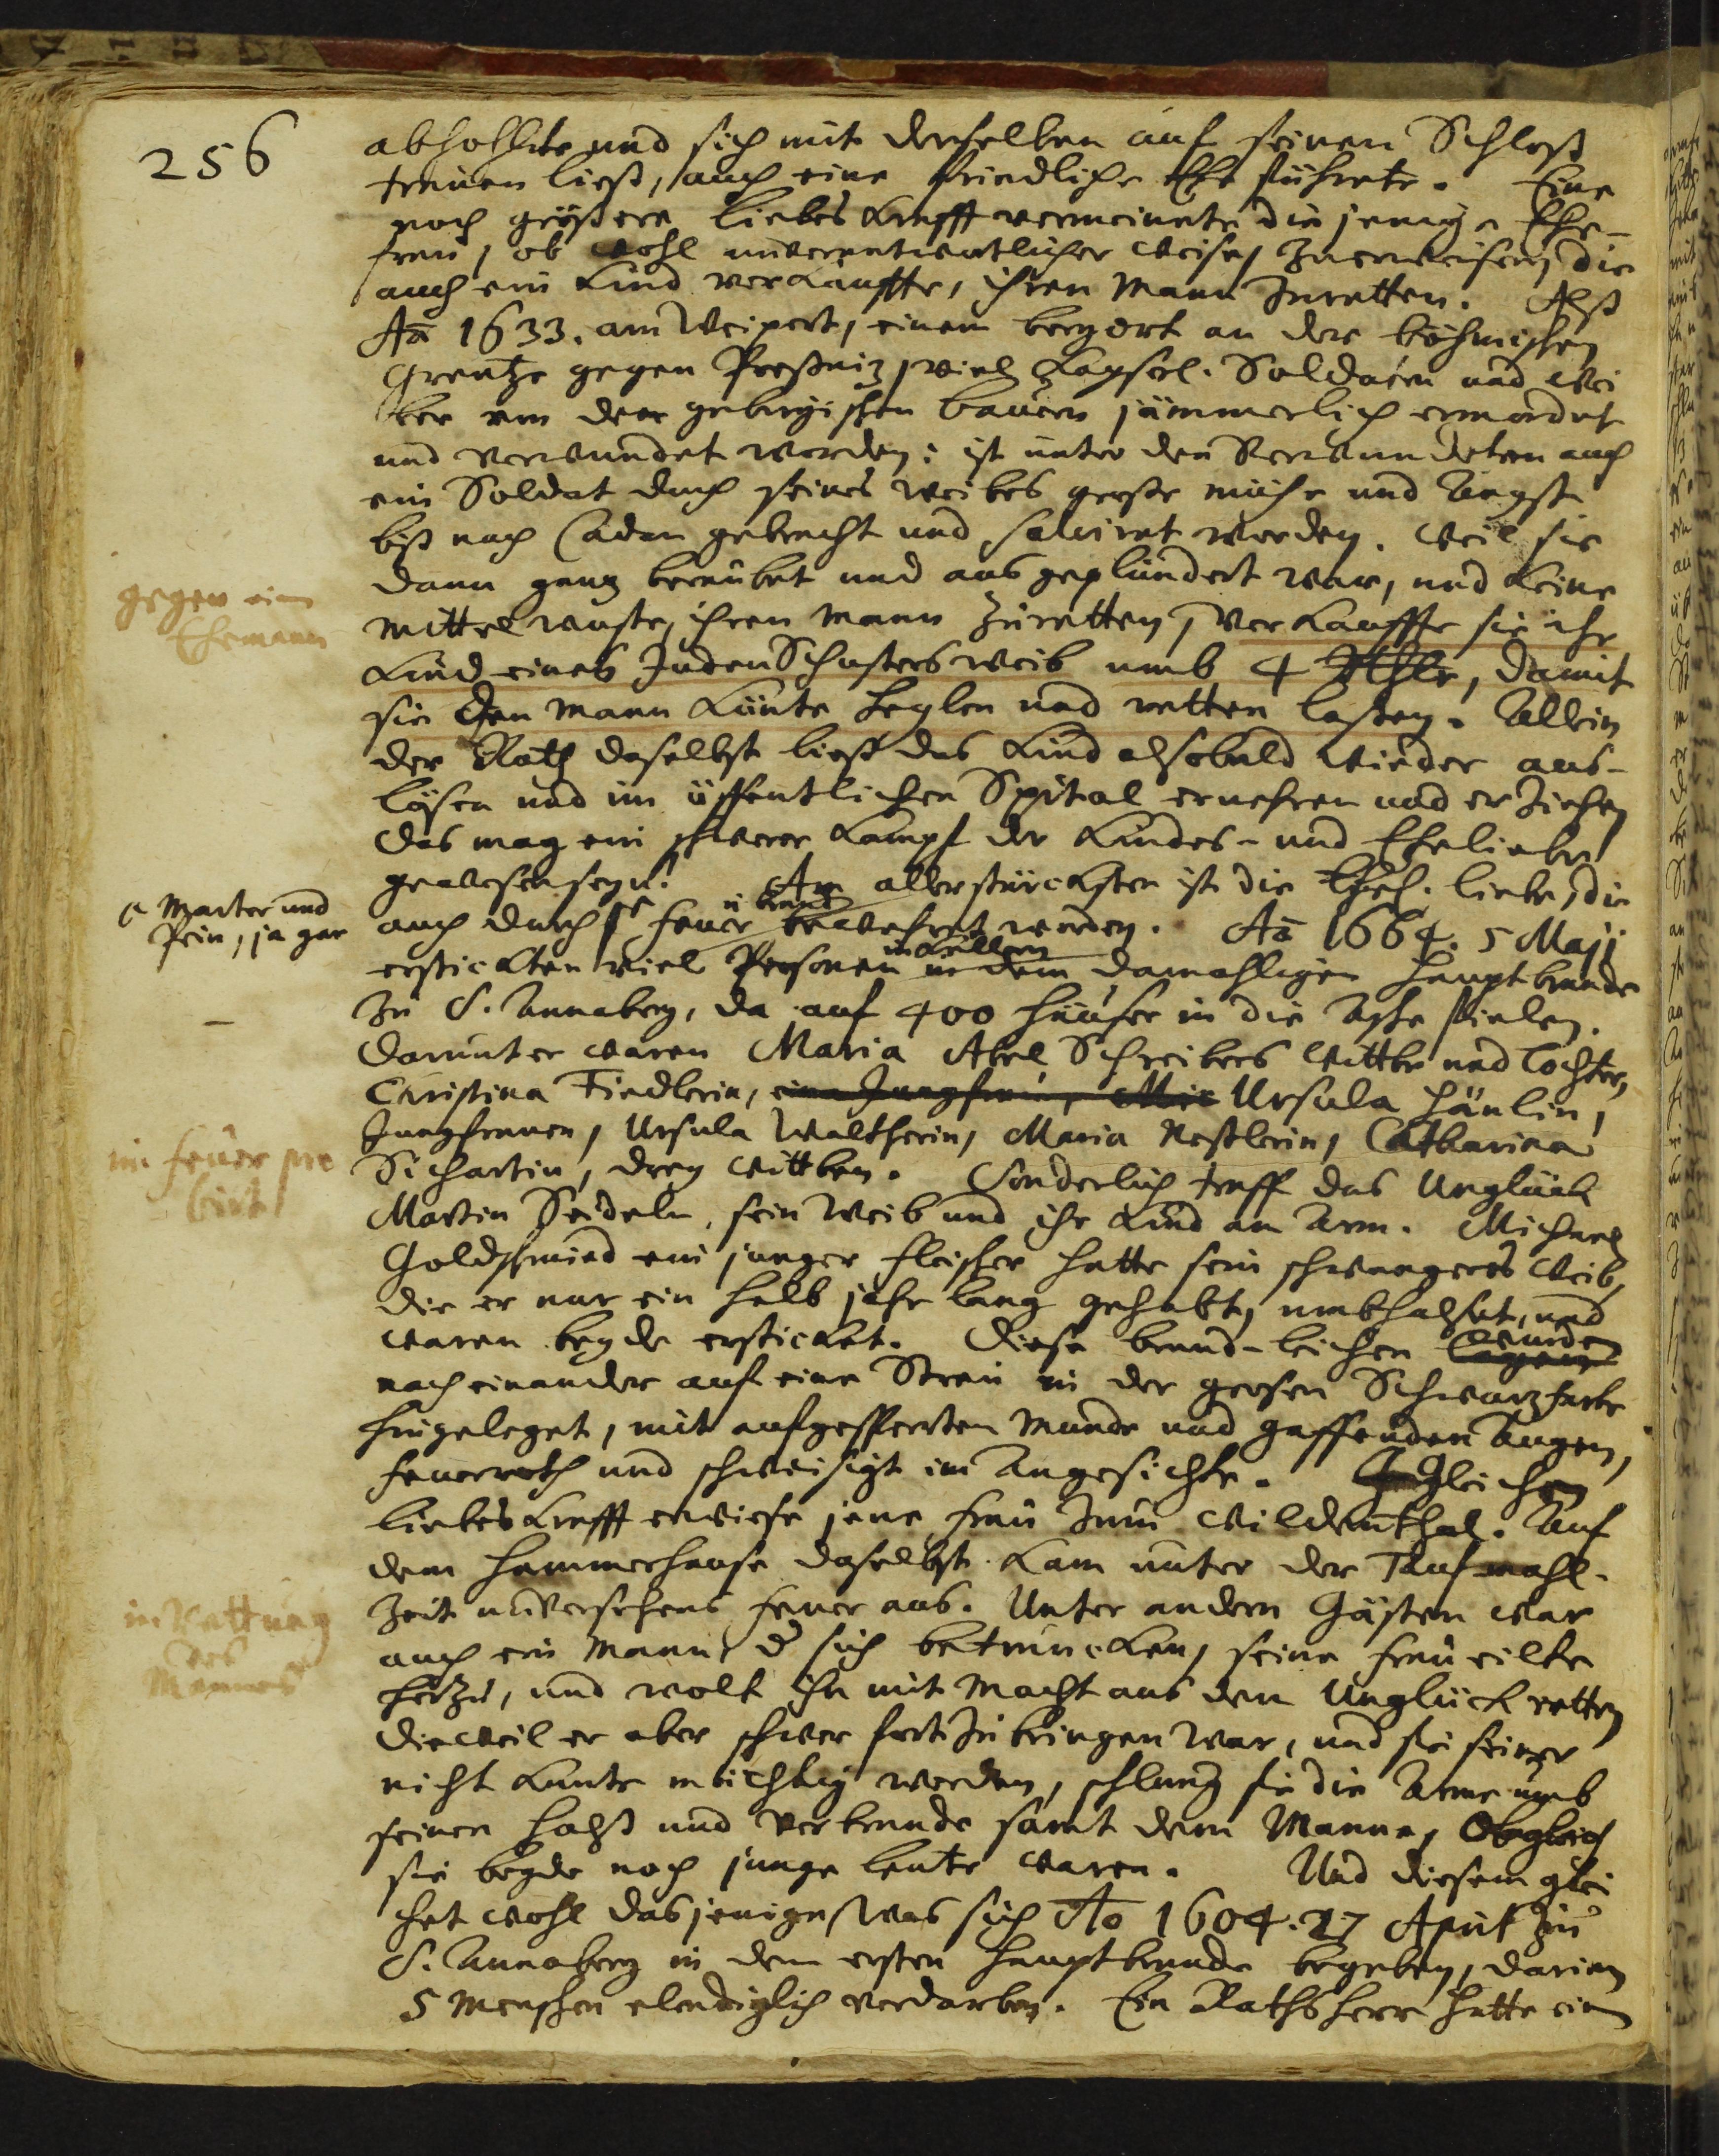 256
abhohlete und sich mit derselben auf seinen Schloß
trauen ließ, auch eine friedliche Ehe führete. Eine
noch größere liebes Krafft vermeinete die jenige Ehe-
frau, ob wohl unverantwortlicher weise, zuerweisen, die
auch ein Kind verkauffte, ihren Mann zuretten. Alß
Aō 1633. am Weipert, einem bergort an der böhmischen
Grentze gegen Preßnitz, viel Kayserl. Soldaten und Wei
ber von den gebirgischen bauern jämmerlich ermordet
und verwundet worden: ist unter den Verwundeten auch
ein Soldat durch seines weibes große mühe und Angst
biß nach Cadan gebracht und salviret worden. Weil sie
dann gantz beraubet und ausgeplündert war, und keine
gegen ein
Ehemann
Mittel wuste, ihren Mann zuretten, verkauffte sie ihr
Kind eines Juden Schusters weib umb 4 Thlr, damit
sie den Mann künte heylen und retten laßen. Allein
der Rath daselbst ließ das Kind alsobald wieder aus-
lösen und im öffentlichen Spital ernehren und erziehen
das mag ein schwerer Kampf der Kindes- und Eheliebe
gewesen seyn! Am allerstärcksten ist die Ehel. liebe, die
Marter und
Pein, ja gar
auch durch feuer u brand bewehret worden. Aō 1664. 5 Maji
erstickten viel Personen in Kellern in dem damahligen Hauptbrande
zu S. Annaberg, da auf 400 häuser in die Asche fielen.
Darunter waren Maria Abel Schreibers Wittbe und Tochter,
Christina Fiedlerin, eine Jungfrau, Ursula Hänlin,
Jungfrauen, Ursula Waltherin, Maria Nestlerin, Catharina
im feuer pro
birt
Sichartin, drey Wittben. Sonderlich traff das Unglück
Martin Seideln, sein Weib und ihr Kind am Arm. Michael
Goldschmied ein junger fleischer hatte sein schwangeres Weib,
die er nur ein halb jahr lang gehabt, umbhalset, und
waren beyde ersticket. Diese brand-leichen wurden
nach einander auf eine Streu in der großen Schwarzfarbe
hingeleget, mit aufgesperrten Munde und gaffenden Augen,
feuerroth und schweißigt im Angesichte. Gleichen
liebes Krafft erwiese jene frau zum Wildenthal. Auf
dem Hammerhause daselbst kam unter der Taufmahl-
in Rettung
des
Mannes
zeit unversehens feuer aus. Unter andern Gästen war
auch ein Mann, der sich betruncken, seine frau eilte
herzu, und wolt ihn mit Macht aus dem Unglück retten
dieweil er aber schwer fortzubringen war, und sie seiner
nicht kunte mächtig werden, schlung sie die Arme umb
seinen Halß und verbrande samt dem Manne, Obgleich
sie beyde noch junge leute waren. Und diesem glei
chet wohl dasjenige, was sich Ao 1604. 27 April zu
S. Annaberg in dem ersten Hauptbrande begeben, darinn
5 Menschen elendiglich verdarben. Ein Rathsherr hatte ein